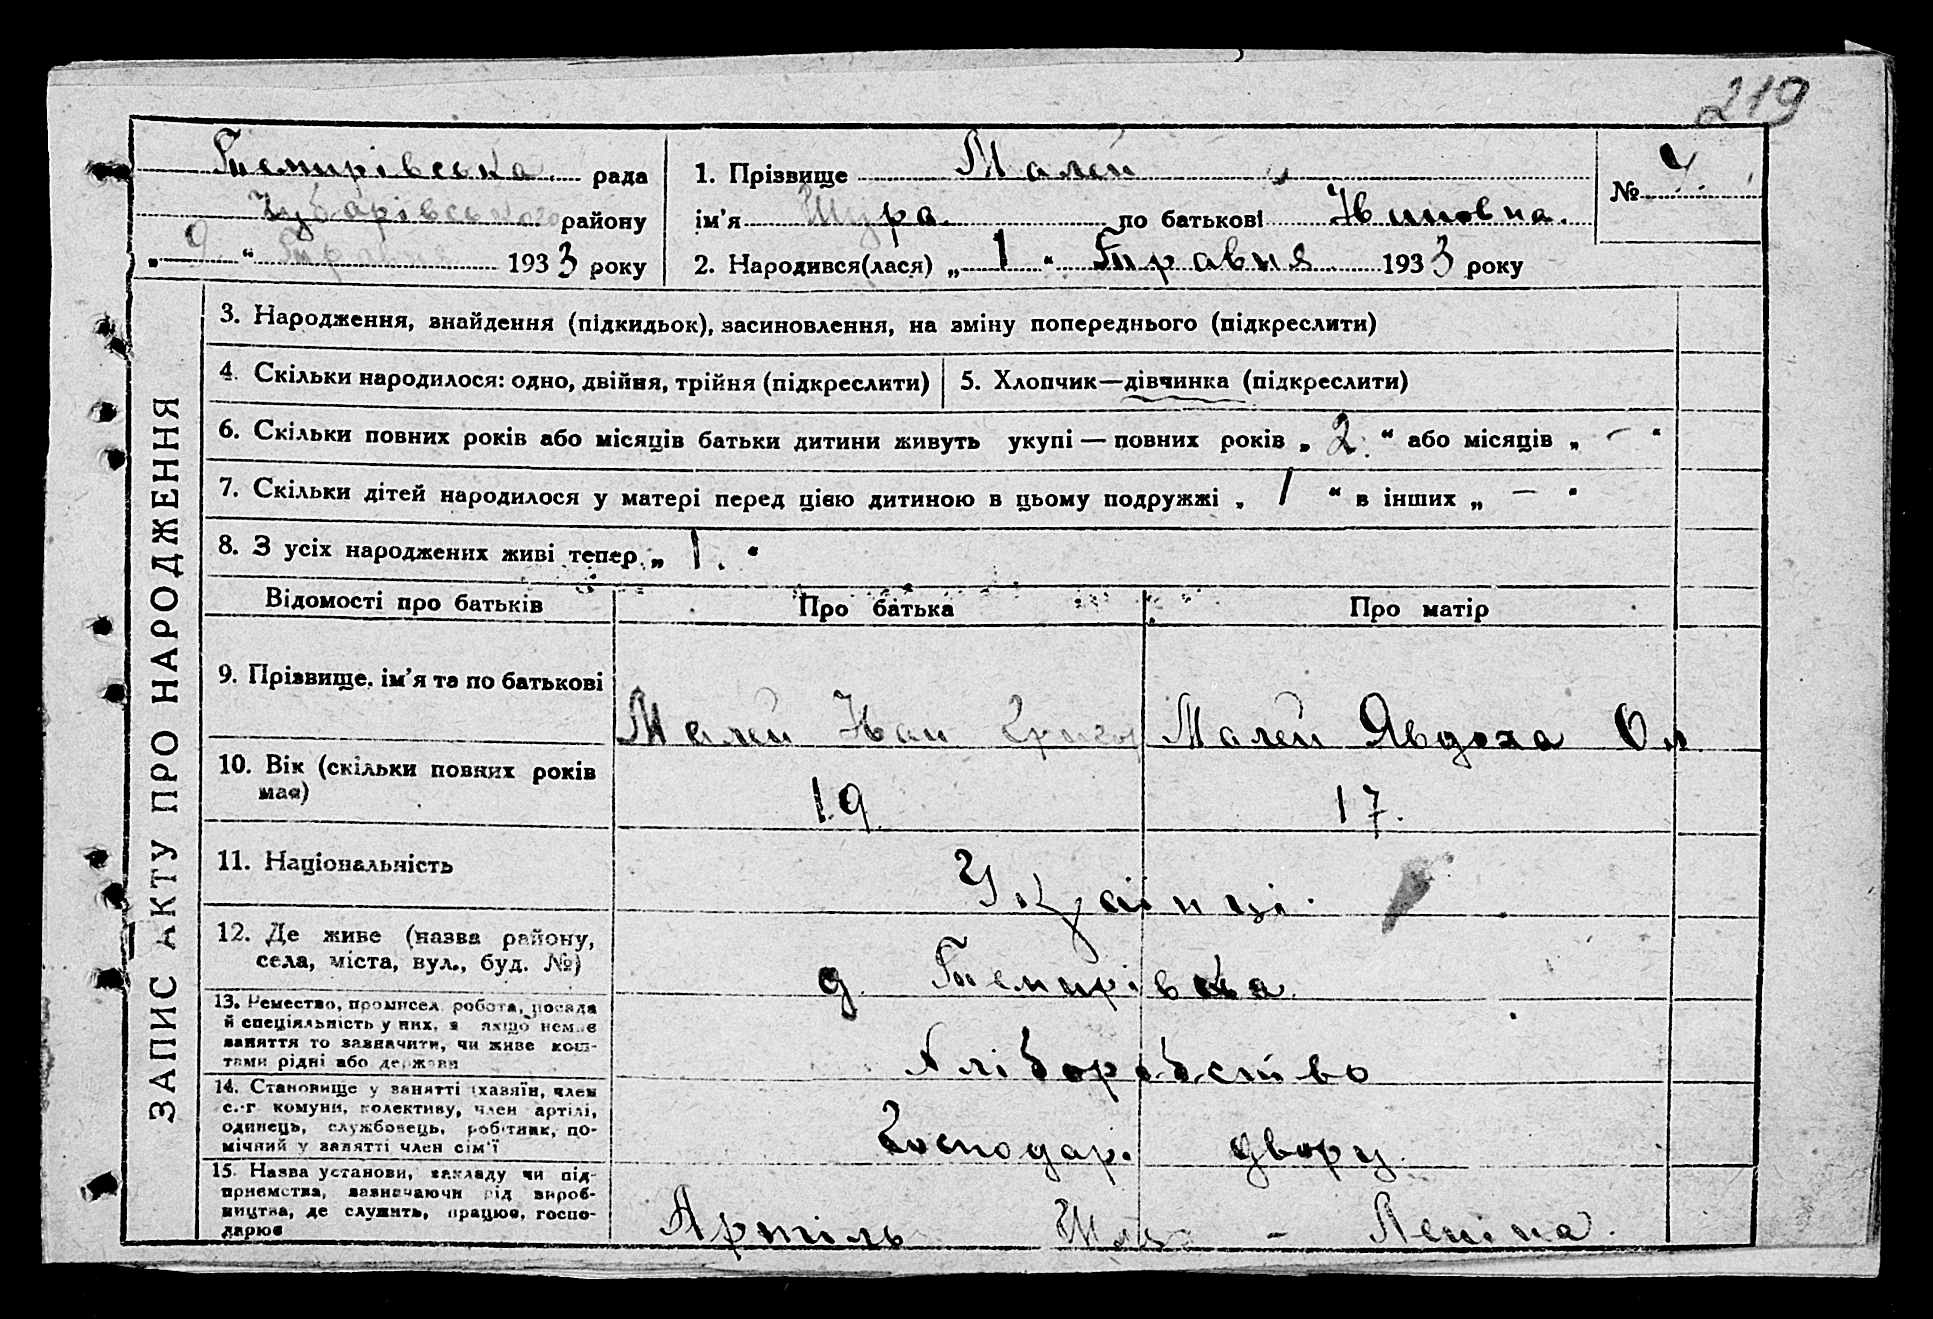 219
Темирівська рада
Чубарівського району
„ 9 “ Травня 1933 року
1. Прізвище Малей
ім’я Шура по батькові Ивановна.
2. Народився(лася) „ 1 “ Травня 1933 року
№ 4
ЗАПИС АКТУ ПРО НАРОДЖЕННЯ
3. Народження, знайдення (підкидьок), засиновлення, на зміну попереднього (підкреслити)
4. Скільки народилося: одно, двійня, трійня (підкреслити)
5. Хлопчик—дівчинка (підкреслити)
6. Скільки повних років або місяців батьки дитини живуть укупі — повних років „ 2. “ або місяців „ — “
7. Скільки дітей народилося у матері перед цією дитиною в цьому подружжі „ 1 “ в інших „ — “
8. З усіх народжених живі тепер „ 1. “
Відомості про батьків Про батька Про матір
9. Прізвище, ім’я та по батькові
Малей Иван Григор Малей Явдоха Ол
10. Вік (скільки повних років має)
19 17.
11. Національність
Українці.
12. Де живе (назва району, села, міста, вул., буд. №)
д. Темирівка
13. Ремество, промисел, робота, посада й спеціяльність у них, а якщо немає заняття то зазначити, чи живе коштами рідні або держави
Хліборобство
14. Становище у занятті (хазяїн, член с.-г комуни, колективу, член артілі, одинець, службовець, робітник, помічний у занятті член сім’ї
Господар. двору
15. Назва установи, закладу чи підприємства, зазначаючи рід виробництва, де служить, працює, господарює
Артіль Шлях - Леніна.